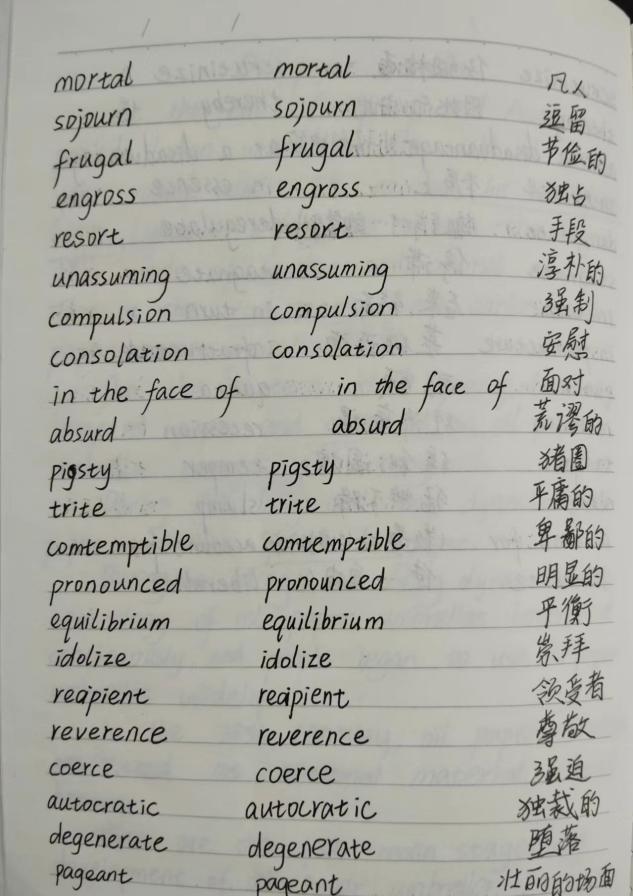 mortal mortal 凡人
sojourn sojourn 逗留
frugal frugal 节俭的
engross engross 独占
resort resort 手段
unassuming unassuming 淳朴的
compulsion compulsion 强制
consolation consolation 安慰
in the face of in the face of 面对
absurd absurd 荒谬的
pigsty pigsty 猪圈
trite trite 平庸的
comtemptible comtemptible 卑鄙的
pronounced pronounced 明显的
equilibrium equilibrium 平衡
idolize idolize 崇拜
recipient recipient 领受者
reverence reverence 尊敬
coerce coerce 强迫
autocratic autocratic 独裁的
degenerate degenerate 堕落
pageant pageant 壮丽的场面